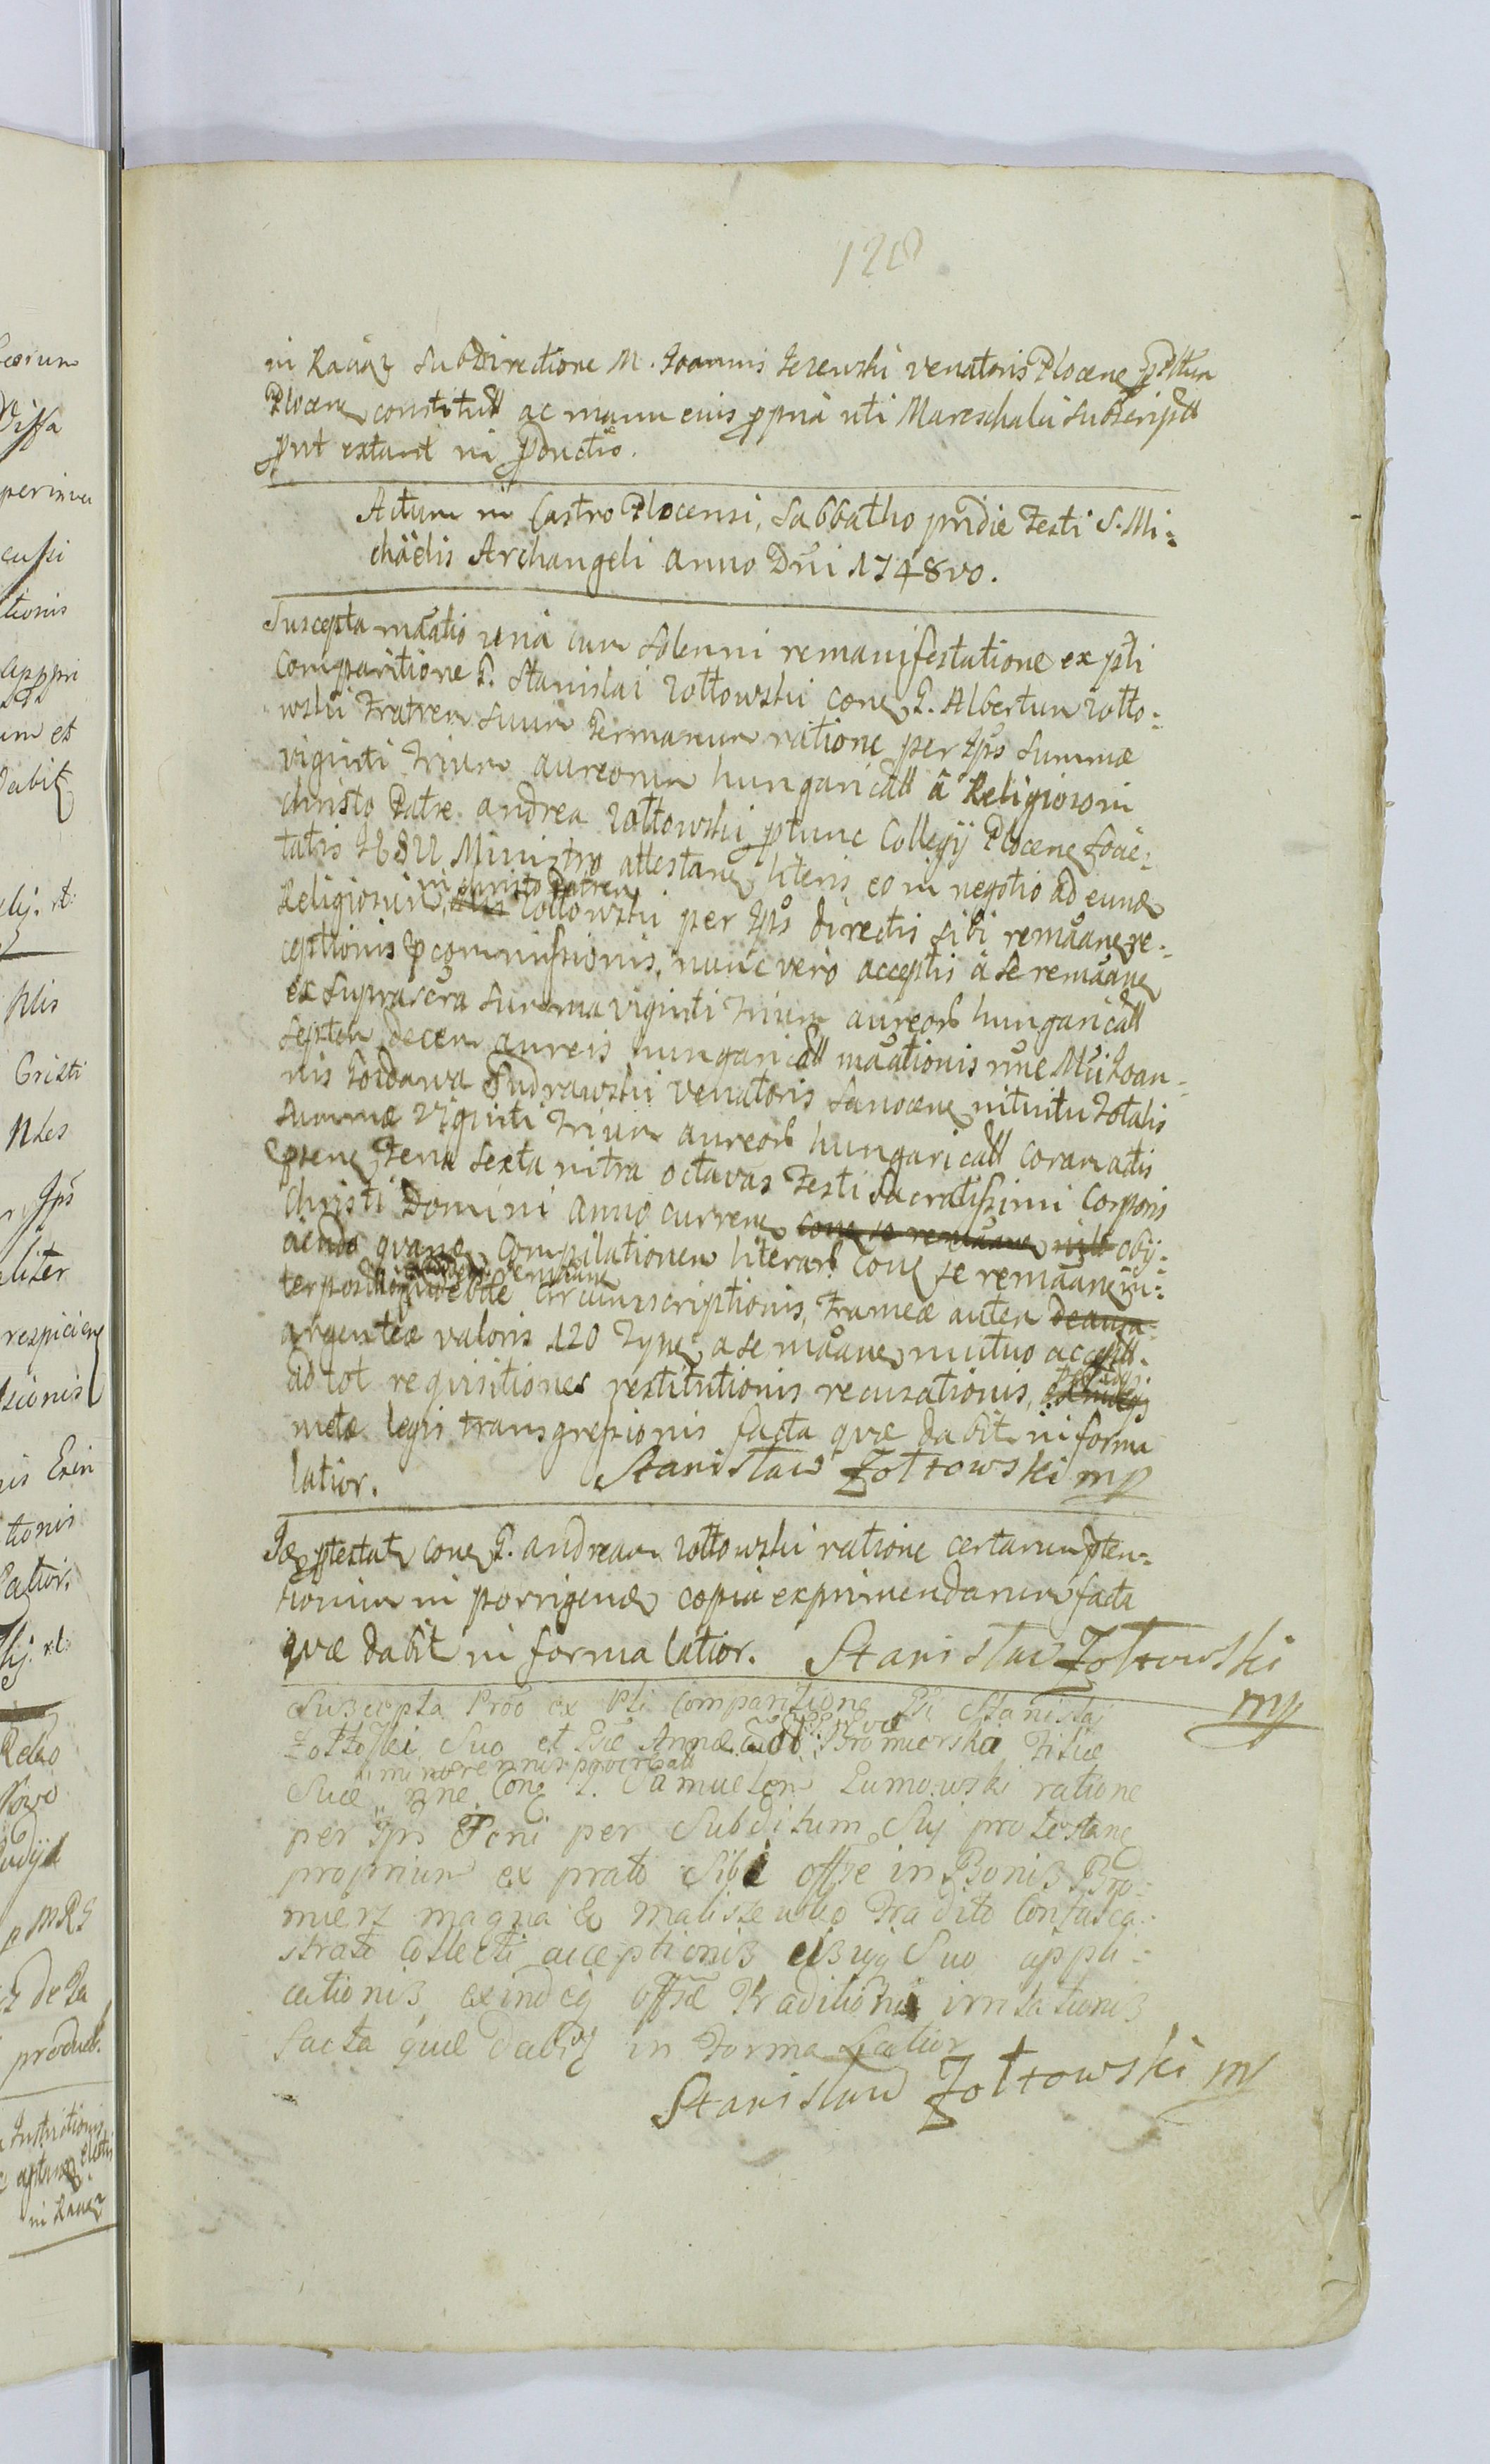 128
in Raciąz sub Directione M. Joannis Jezewski venatoris Plocen
Plocen constitutt ac manu eius ppria uti Mareschalci Subscriptt
prt extant in pductio.
Actum in Castro Plocensi, Sabbatho pridie Festi S. Mi=
chäelis Archangeli anno Dni 1748vo.
Suscepta mãatio unà cum solenni remanifestatione ex psti
comparitione G. Stanislai Zołtowski con G. Albertum Zołto=
wski Fratrem Suum Germanum ratione per Jps Summæ
viginti trium aureorum hungaricall à Religioso in
christo Patre andrea Zołtowski ptunc Collegÿ Plocen Socie=
tatis JESU Ministro attestan literis eo in negotio ad eund
Religiosum in christo Patrem Zołtowski per Jps directis sibi remãan re=
ceptionis & commissionis, nunc verò acceptis à se remãan
ex suprascra summa viginti trium aureor hungaricall
septem decem aureis hungaricall mãationis nne Mci Joan=
nis Gozdawa Gudrawski venatoris Sanocen intuitu totalis
summæ viginti trium aureor hungaricall coram actis
psten Feria sexta intra octavas Festi Sacratissimi Corporis
Christi Domini anno curren con se remãan obij=
ciendo quand compilationem literar con se remãan in=
terposition circumscriptionis, Frameæ autem
argenteæ valoris 120 Tynf a se mãan mutuo acceptt
ad tot requisitiones restitutionis recusationis,
metæ legis transgressionis facta quæ dabit in forma
latior. Stanisław Zołtowski mp
Id ptestat con G. andream Zołtowski ratione certarum pten=
tionum in porrigend copia exprimendarum facta
quæ dabit in forma latior. Stanisław Zołtowski
mp
Suscepta Pròo ex Psti Comparitione Gi Stanislai
Zołtoski Suo et Gæ Annæ Bromierska Filiæ
Suæ minorennis procreat nne Con G. Samuelem Lumowski ratione
per Jps Feni per Subditum Suj protestan
proprium ex prato Sibi offse in Bonis Bro=
mierz magna & Maliszewko Tradito
strato Collecti acceptionis Usuiq Suo appli=
cationis exindeq offsæ Traditionis irritationis
facta quæ dabit in Forma Latior
Stanisław Zołtowski mp